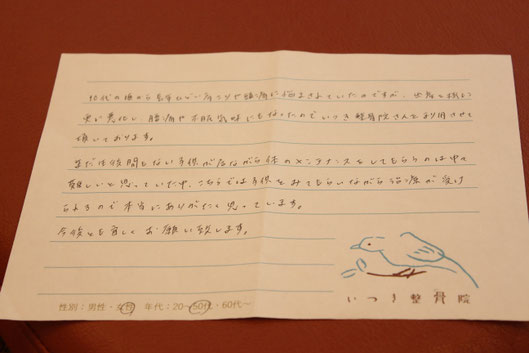 10代の頃から長年ひどい肩こりや腰痛に悩まされていたのですが、出産を機に
更に悪化し、腱鞘や不眠気味にもなったのでいつき整骨院さんを利用させて
頂いております。
まだ生後間もない子供が居ながら体のメンテナンスをしてもらうのは中々
難しいと思っていた中、こちらでは子供をみてもらいながら治療が受け
られるので本当にありがたく思っています。
今後とも宜しくお願い致します。
いつき整骨院
性別:男性・女性 年代:20～50代・60代～